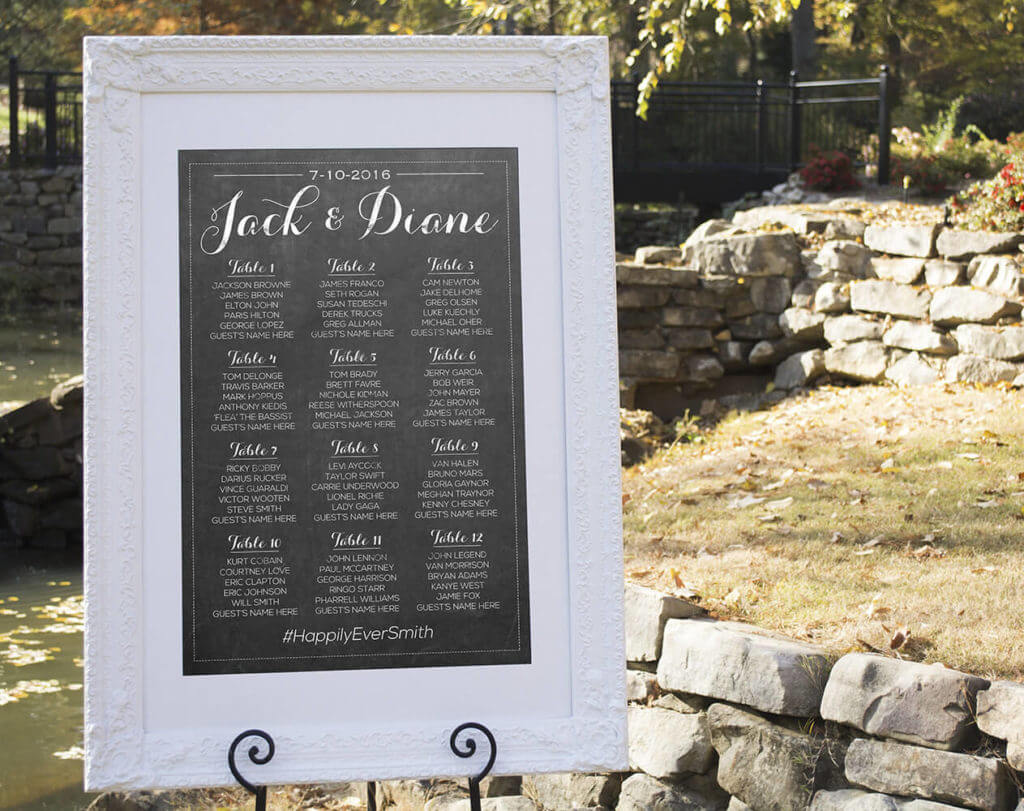 7-10-2016
Jack & Diane
Table 1
JACKSON BROWNE
JAMES BROWN
ELTON JOHN
PARIS HILTON
GEORGE LOPEZ
GUEST'S NAME HERE
Table 2
JAMES FRANCO
SETH ROGAN
SUSAN TEDESCHI
DEREK TRUCKS
GREG ALLMAN
GUEST'S NAME HERE
Table 3
CAM NEWTON
JAKE DELHOME
GREG OLSEN
LUKE KUECHLY
MICHAEL OHER
GUEST'S NAME HERE
Table 4
TOM DELONGE
TRAVIS BARKER
MARK HOPPUS
ANTHONY KIEDIS
'FLEA' THE BASSIST
GUEST'S NAME HERE
Table 5
TOM BRADY
BRETT FAVRE
NICHOLE KIDMAN
REESE WITHERSPOON
MICHAEL JACKSON
GUEST'S NAME HERE
Table 6
JERRY GARCIA
BOB WEIR
JOHN MAYER
ZAC BROWN
JAMES TAYLOR
GUEST'S NAME HERE
Table 7
RICKY BOBBY
DARIUS RUCKER
VINCE GUARALDI
VICTOR WOOTEN
STEVE SMITH
GUEST'S NAME HERE
Table 8
LEVI AYCOCK
TAYLOR SWIFT
CARRIE UNDERWOOD
LIONEL RICHIE
LADY GAGA
GUEST'S NAME HERE
Table 9
VAN HALEN
BRUNO MARS
GLORIA GAYNOR
MEGHAN TRAYNOR
KENNY CHESNEY
GUEST'S NAME HERE
Table 10
KURT COBAIN
COURTNEY LOVE
ERIC CLAPTON
ERIC JOHNSON
WILL SMITH
GUEST'S NAME HERE
Table 11
JOHN LENNON
PAUL MCCARTNEY
GEORGE HARRISON
RINGO STARR
PHARRELL WILLIAMS
GUEST'S NAME HERE
Table 12
JOHN LEGEND
VAN MORRISON
BRYAN ADAMS
KANYE WEST
JAMIE FOX
GUEST'S NAME HERE
#HappilyEverSmith